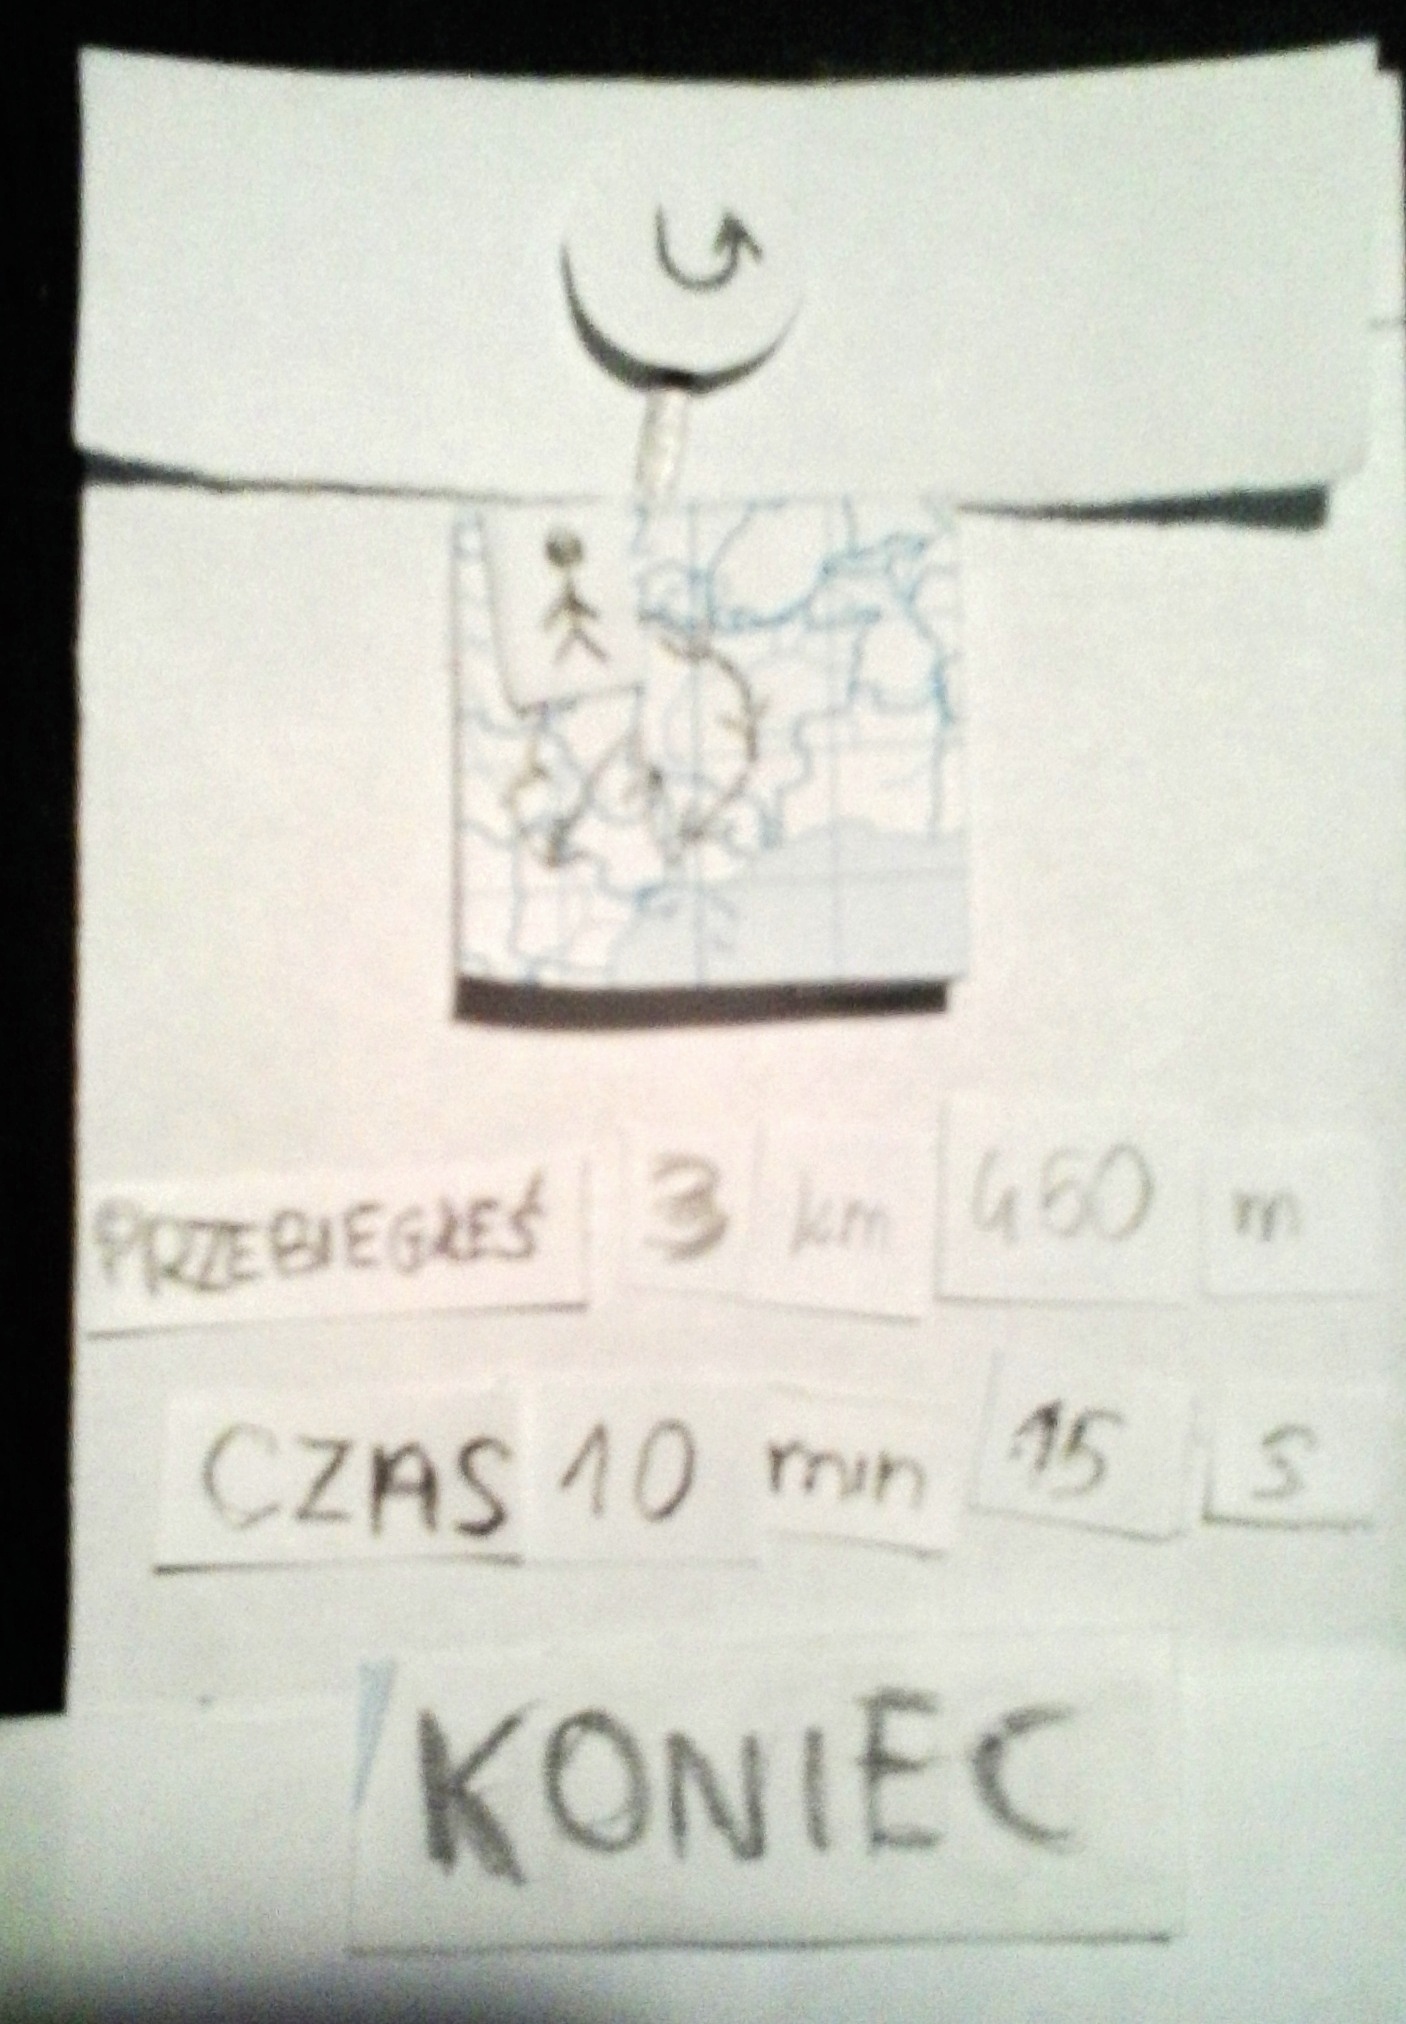 PRZEBIEGŁEŚ 3 km 450 m
CZAS 10 min 15 s
KONIEC